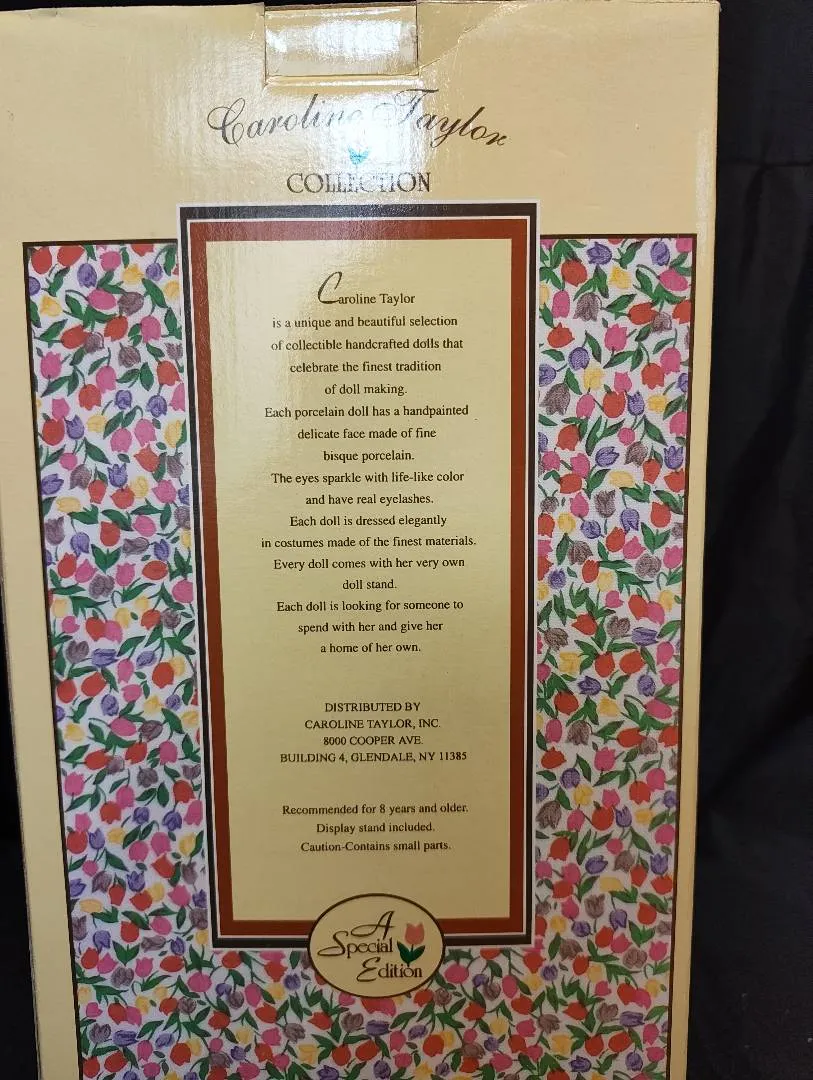 Caroline Taylor
COLLECTION
Caroline Taylor
is a unique and beautiful selection
of collectible handcrafted dolls that
celebrate the finest tradition
of doll making.
Each porcelain doll has a handpainted
delicate face made of fine
bisque porcelain.
The eyes sparkle with life-like color
and have real eyelashes.
Each doll is dressed elegantly
in costumes made of the finest materials.
Every doll comes with her very own
doll stand.
Each doll is looking for someone to
spend with her and give her
a home of her own.
DISTRIBUTED BY
CAROLINE TAYLOR, INC.
8000 COOPER AVE.
BUILDING 4, GLENDALE, NY 11385
Recommended for 8 years and older.
Display stand included.
Caution-Contains small parts.
A
Special
Edition